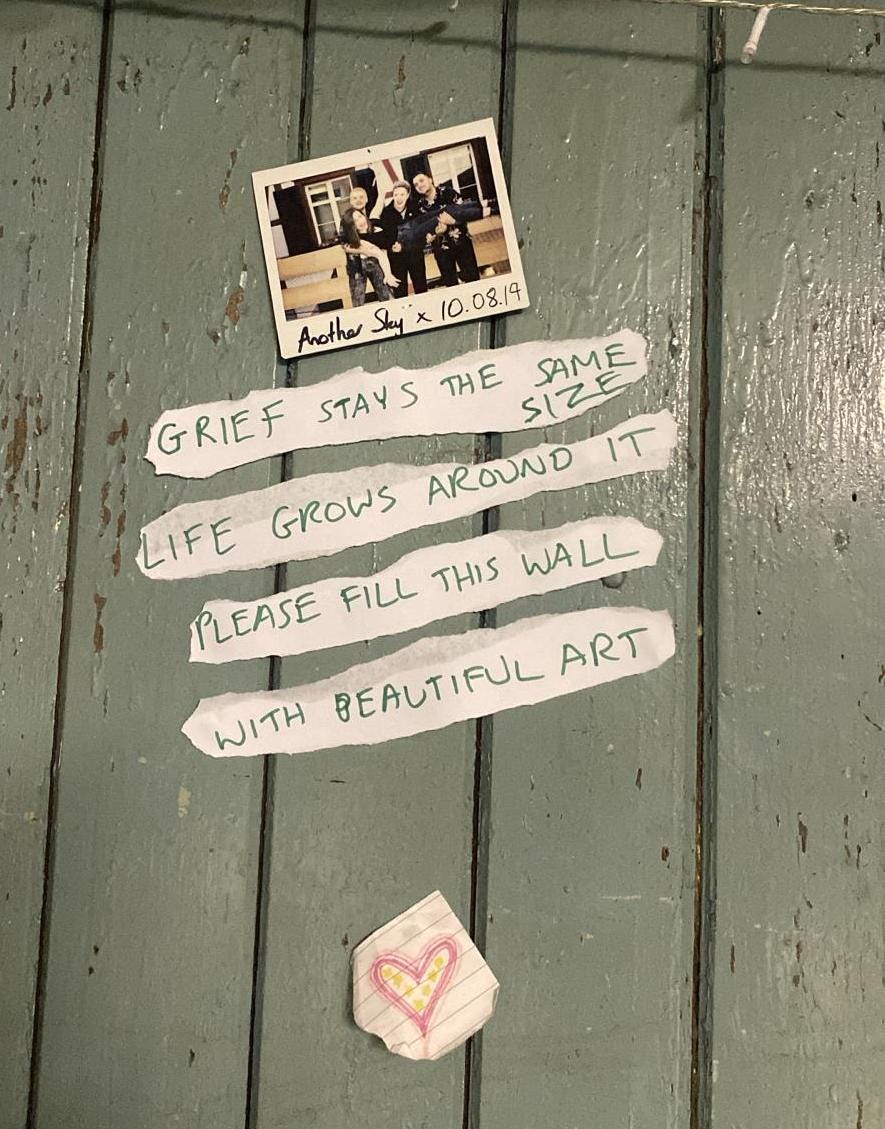 Another Sky x 10.08.19
GRIEF STAYS THE SAME
SIZE
LIFE GROWS AROUND IT
PLEASE FILL THIS WALL
WITH BEAUTIFUL ART